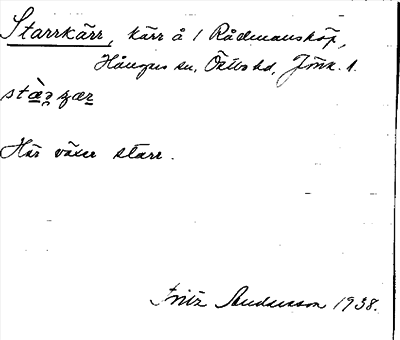 Starrkärr, kärr å 1 Rådmansköp,
Hångers sn, Östbo hd, Jönk. l.
stàr̥ʒær
Här växer starr.
Fritz Andersson 1938.